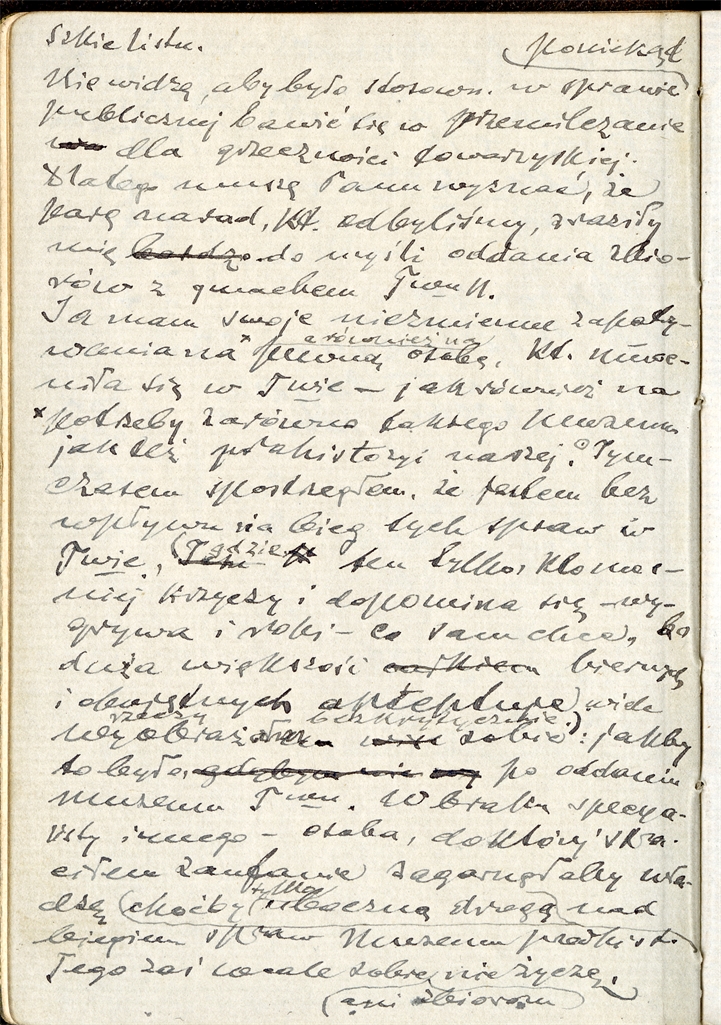 Szkic listu.
Poniekąd
Nie widzę, aby było stosown. w sprawie
publicznej bawić się w przemilczanie
dla grzeczności towarzyskiej.
Dlatego muszę Panu wyznać, że
parę narad, kt. odbyliśmy, zraziły
mię bardzo do myśli oddania zbio-
rów z gmachem Twu N.
Ja mam swoje niezmienne zapatry-
wania na x pewną osobę, kt.
a również na
się w Twie – jak również na
x potrzeby zarówno takiego Muzeum
jak też prahistoryi naszej. Tym-
czasem spostrzegłem, że jestem bez
wpływu na bieg tych spraw w
Twie, (gdzie ten tylko, kto moc-
niej krzyczy i dopomina się – wy-
grywa i robi – co sam chce, bo
duża większość całkiem biernych
i obojętnych akceptuje wiele
rzeczy bezkrytycznie.)
Wyobrażam sobie: jakby
to było gdybym po oddaniu
muzeum Twu. W braku specya-
listy innego – osoba, do której stra-
ciłem zaufanie zagarnęłaby wła-
dzę (choćby tylko uboczną drogą) nad
biegiem spraw Muzeum przedhist.
Tego zaś wcale sobie nie życzę,
(ani zbiorom